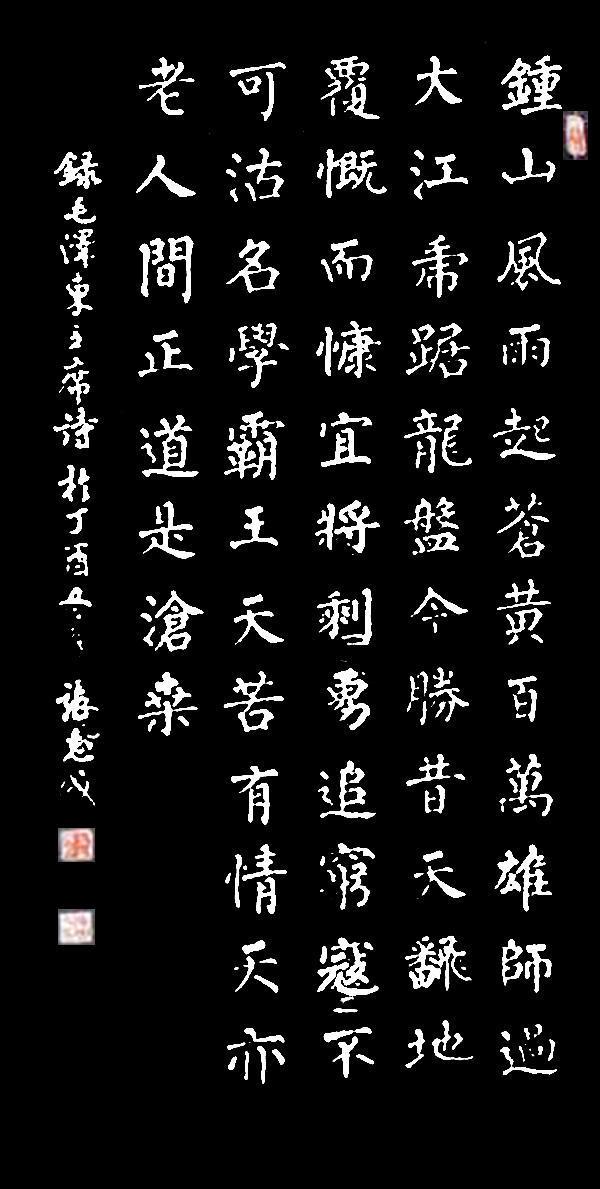 鍾山風雨起蒼黃百萬雄師過
大江乕踞龍盤今勝昔天飜地
覆慨而慷宜將剩勇追窮寇不
可沽名學霸王天苦有情天亦
老人間正道是滄桑
録毛澤東主席詩於丁酉